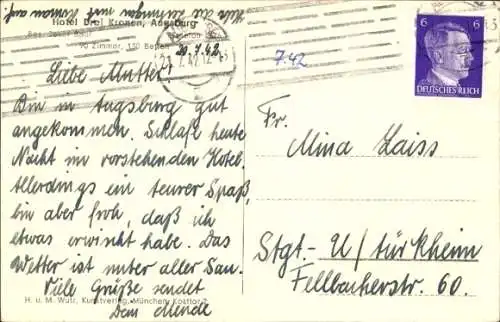 Hotel Drei Kronen, Augsburg
Bes. Oskar
90 Zimmer, 150 Betten
20.7.42
7.42
6 6
DEUTSCHES REICH
Liebe Mutter!
Bin in Augsburg gut
angekommen. Schlafe heute
Nacht im vorstehenden Hotel.
Allerdings ein teurer Spaß,
bin aber froh, daß ich
etwas erwischt habe. Das
Wetter ist unter aller Sau.
Viele Grüße sendet
Fr.
Mina Laiss
Stgt.-U/türkheim
Fellbacherstr. 60.
H. u. M. Wutz, Kunstverlag, München, Kosttor 2